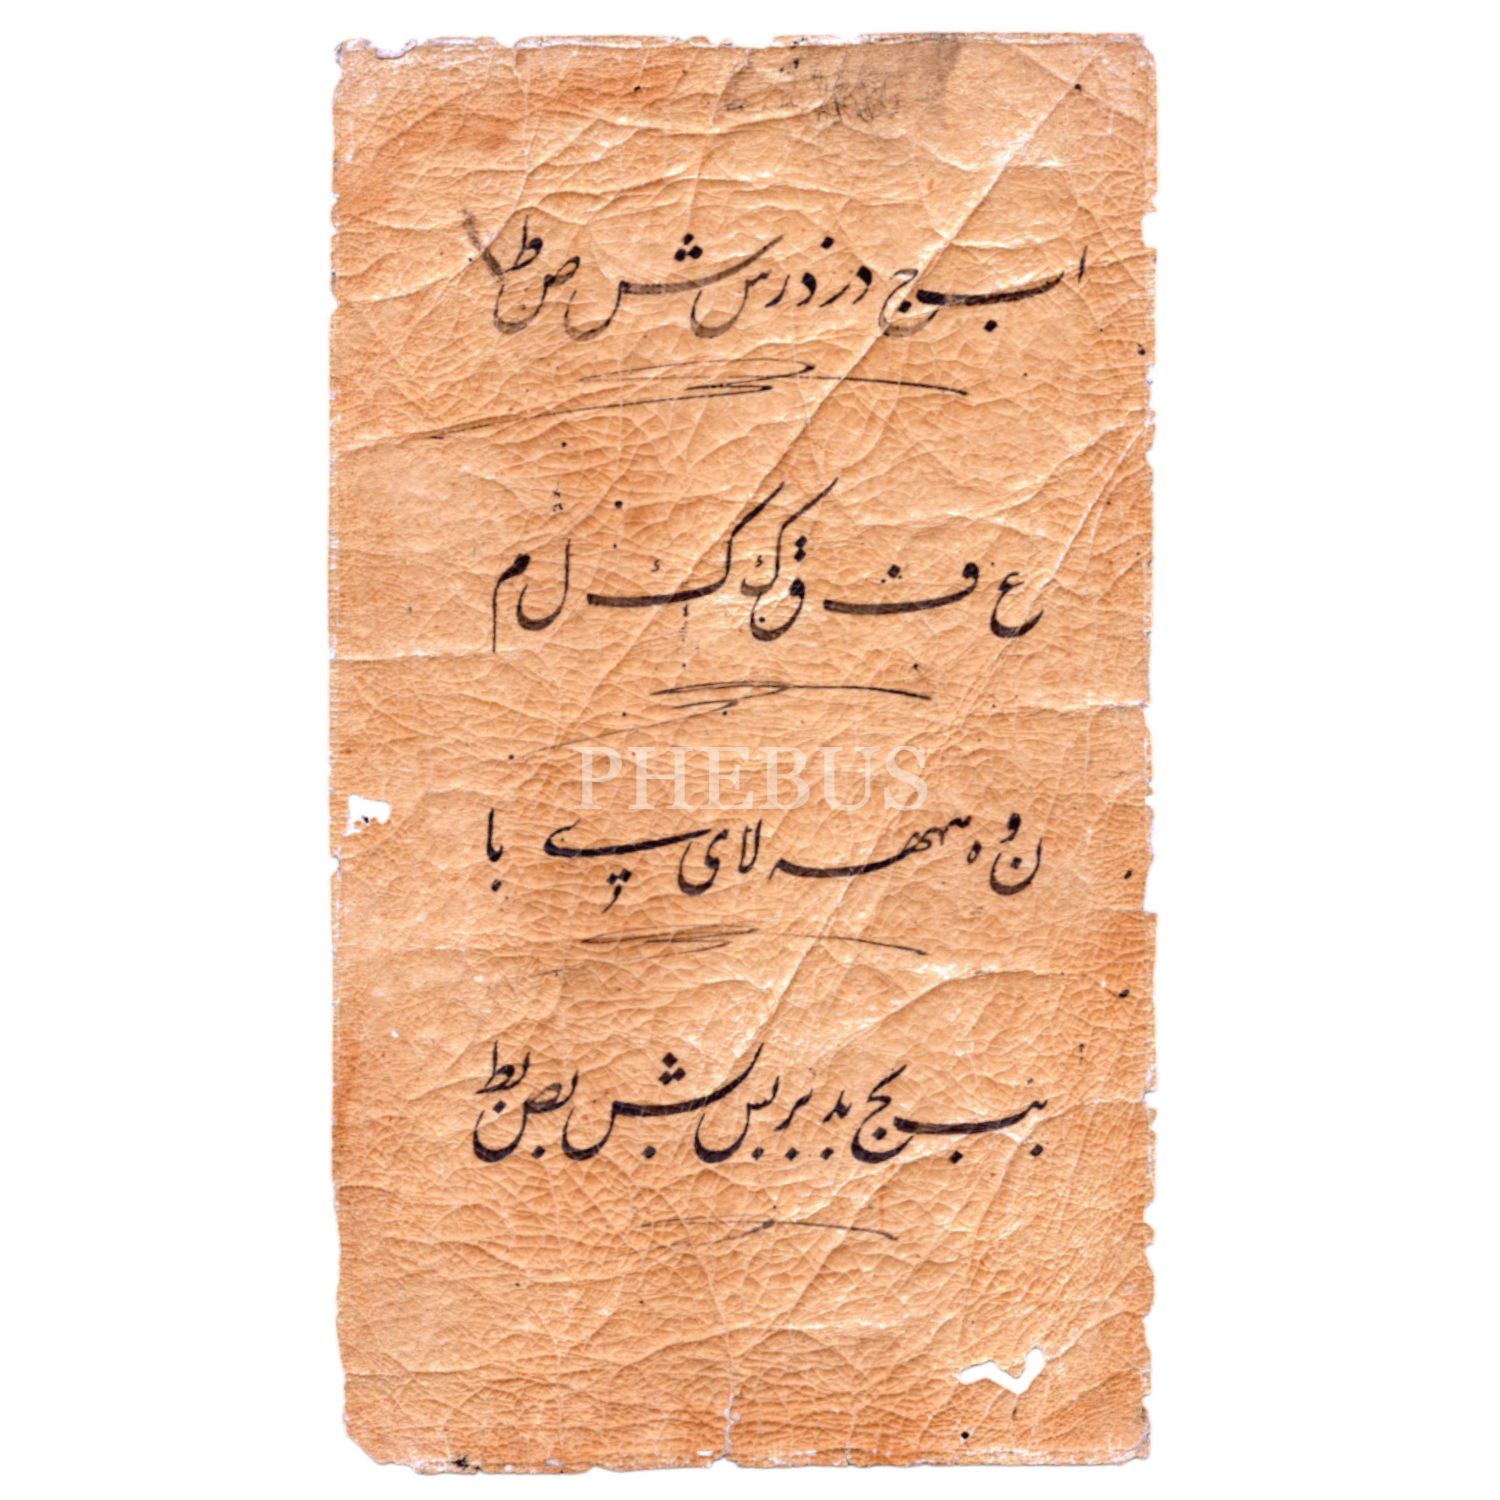 ا ب ج د ر ذ ر س ش ص ط
ع ف ق ک ک ل م
PHEBUS
ن و ه هه لا ی پے با
بب بج بد بر بس بش بص بط